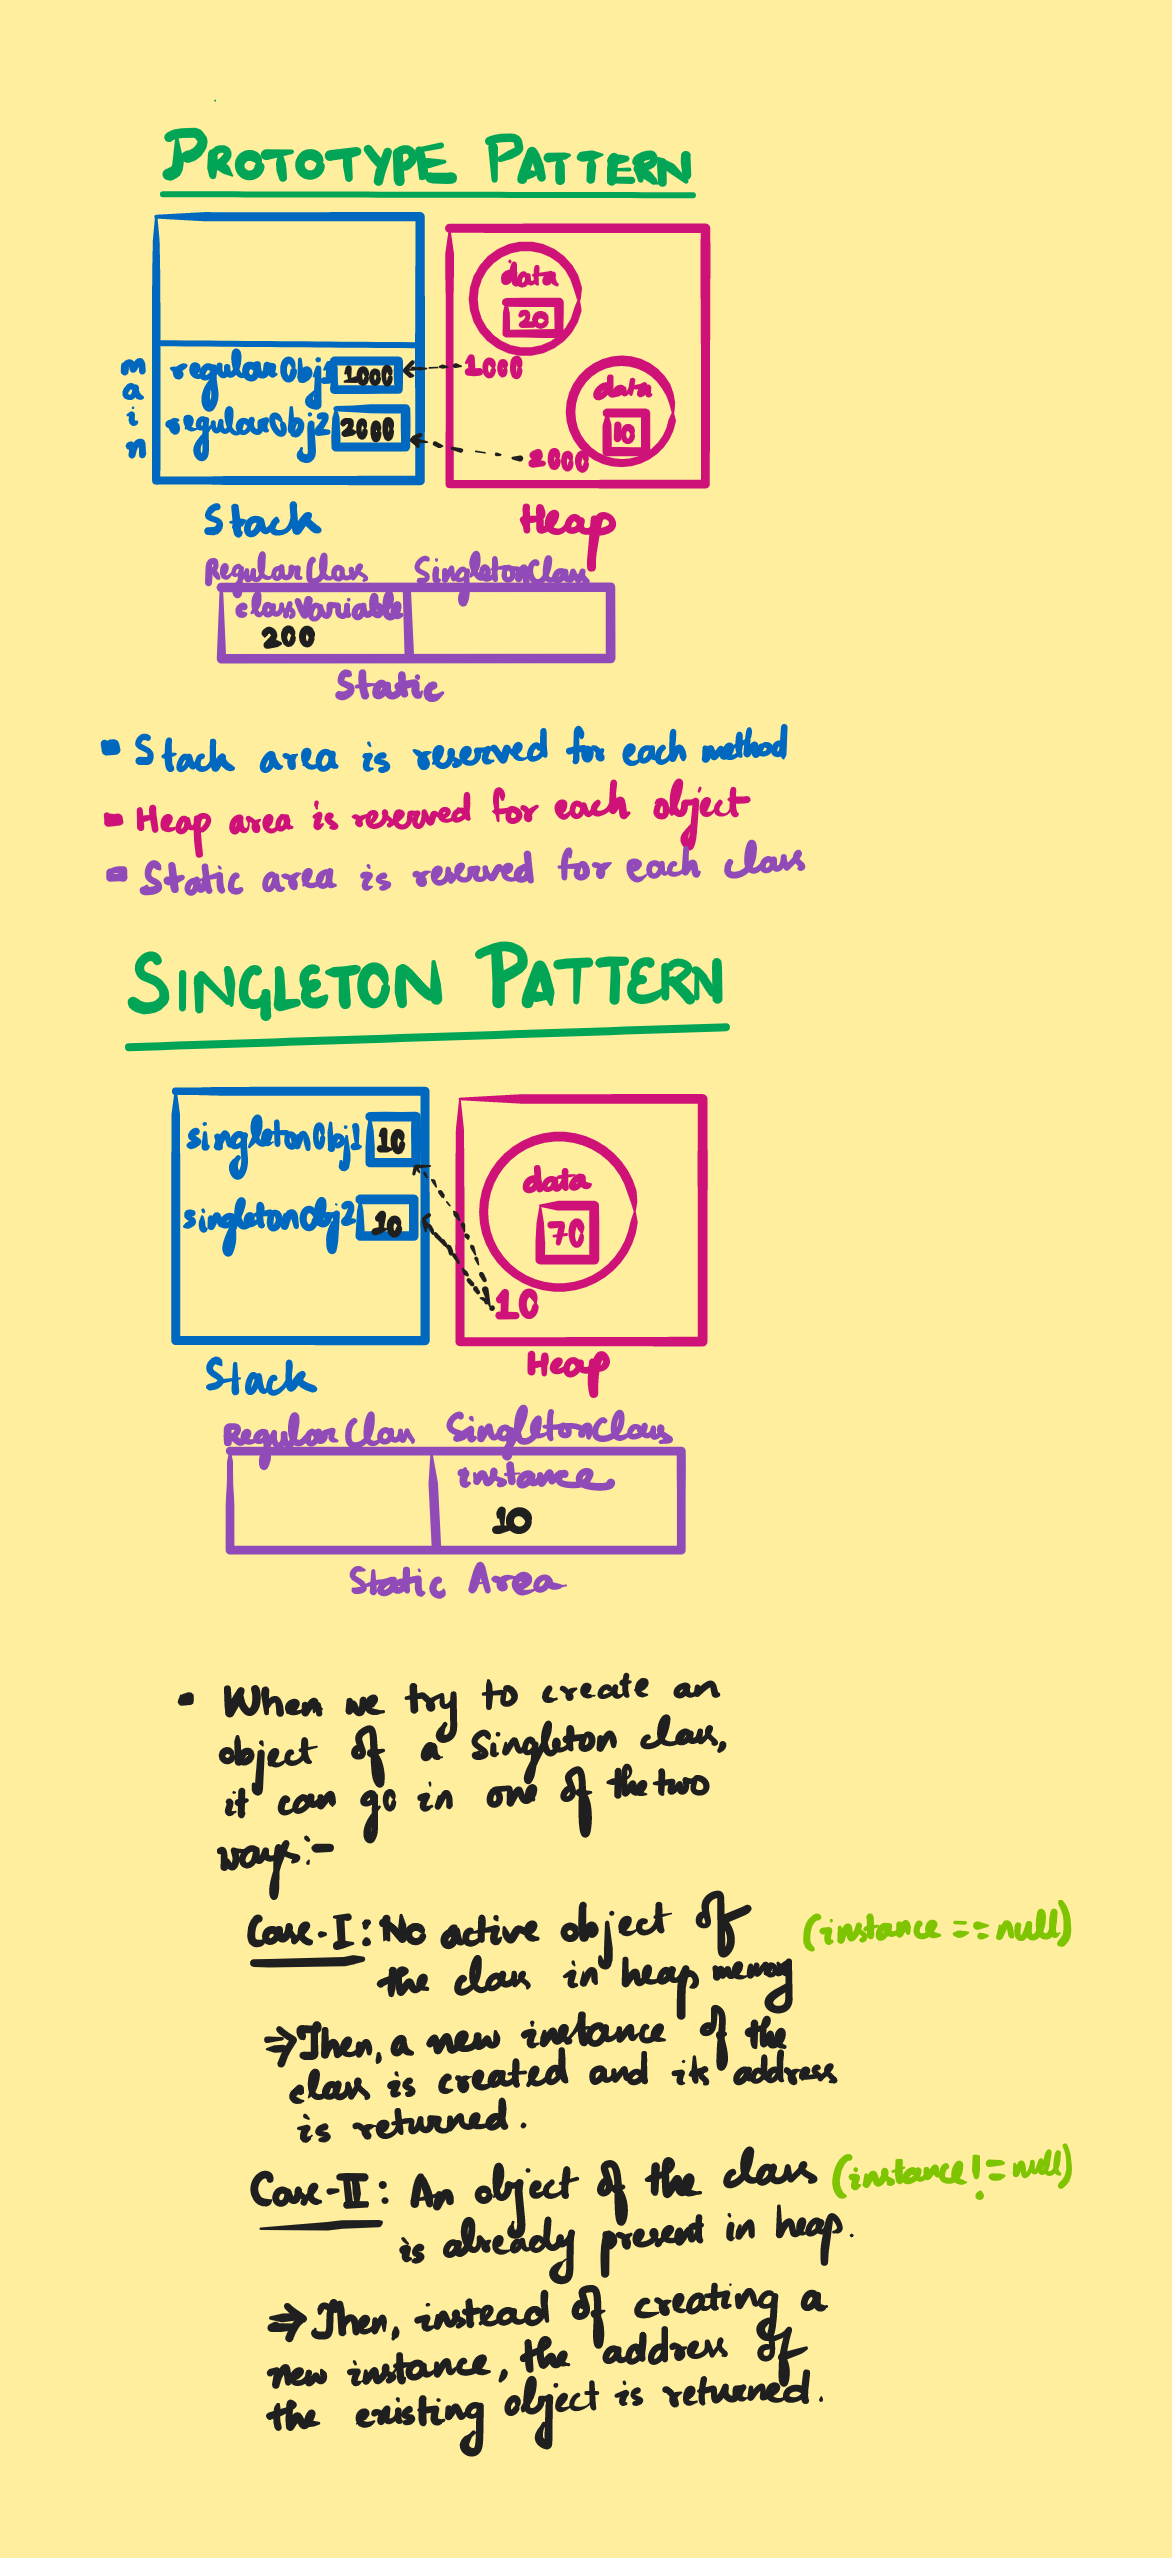 PROTOTYPE PATTERN
data
20
main
regularObj1 1000
1000
data
10
regularObj2 2000
2000
Stack
Heap
RegularClass SingletonClass
classVariable
200
Static
- Stack area is reserved for each method
- Heap area is reserved for each object
- Static area is reserved for each class
SINGLETON PATTERN
singletonObj1 10
singletonObj2 10
data
70
10
Stack
Heap
RegularClass SingletonClass
instance
10
Static Area
- When we try to create an
object of a Singleton class,
it can go in one of the two
ways:-
Case-I: No active object of (instance == null)
the class in heap memory
⇒ Then, a new instance of the
class is created and its address
is returned.
Case-II: An object of the class (instance != null)
is already present in heap.
⇒ Then, instead of creating a
new instance, the address of
the existing object is returned.